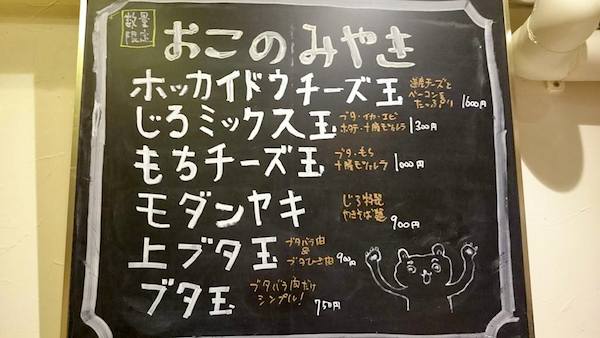 数量
限定
おこのみやき
ホッカイドウチーズ玉
道産チーズと
ベーコンを
たっぷり
1600円
じろミックス玉
ブタ・イカ・エビ
ホタテ・十勝モッツァレラ
1300円
もちチーズ玉
ブタ・もち
十勝モッツァレラ
1000円
モダンヤキ
じろ特製
やきそば麺
900円
上ブタ玉
ブタバラ肉
&
ブタひき肉
900円
ブタ玉
ブタバラ肉だけ
シンプル!
750円